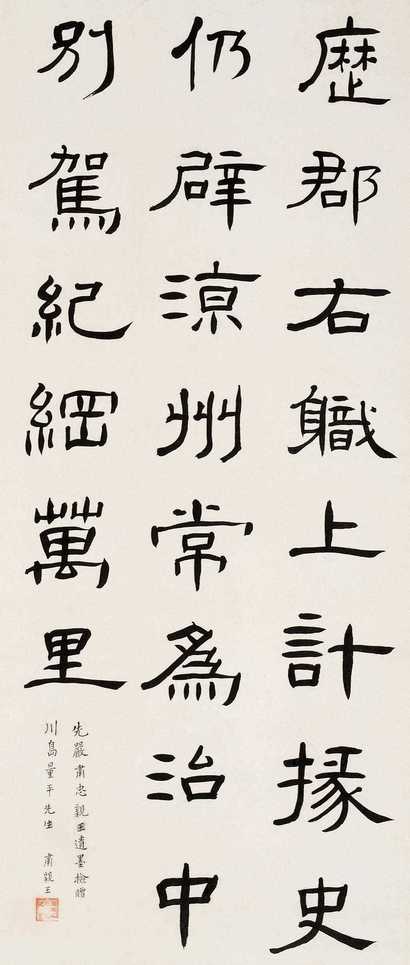 歷郡右職上計掾史
仍辟涼州常為治中
別駕紀綱萬里
先嚴肅忠親王遺墨撿贈
川島量平先生 肅親王